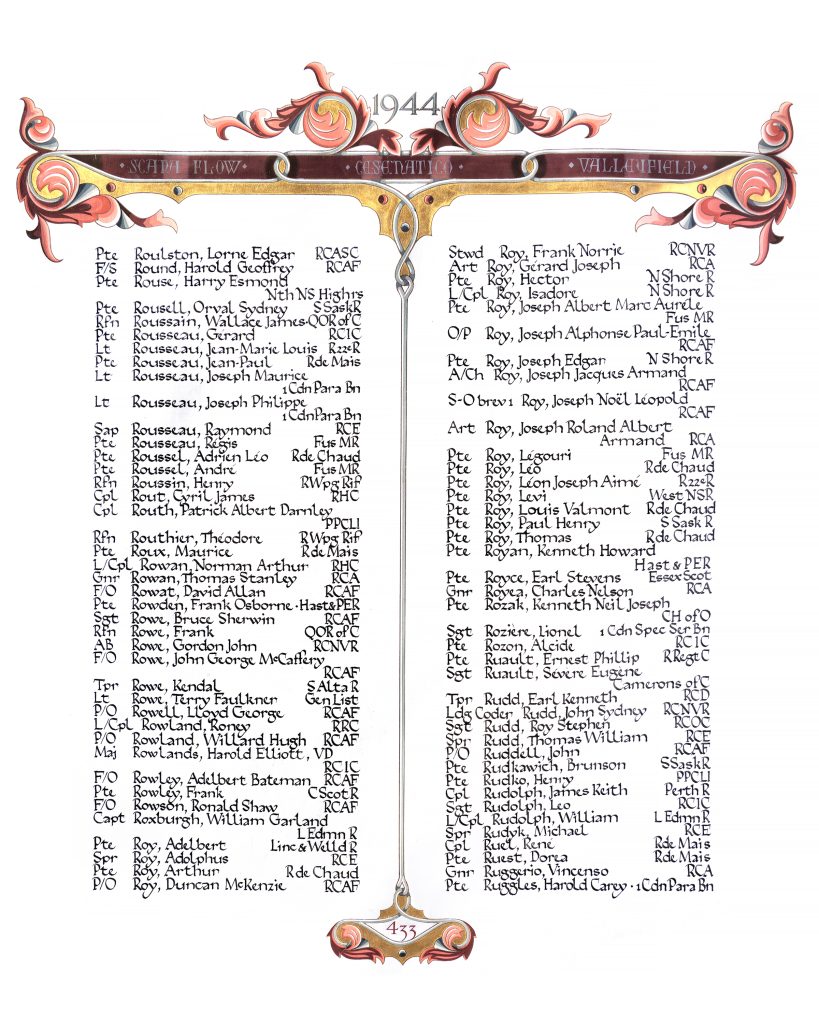 1944
· SCAPA FLOW · CESENATICO · VALLEYFIELD ·
Pte Roulston, Lorne Edgar RCASC
F/S Round, Harold Geoffrey RCAF
Pte Rouse, Harry Esmond
Nth NS Highrs
Pte Rousell, Orval Sydney S Sask R
Rfn Roussain, Wallace James · QOR of C
Pte Rousseau, Gérard RCIC
Lt Rousseau, Jean-Marie Louis R22eR
Pte Rousseau, Jean-Paul R de Mais
Lt Rousseau, Joseph Maurice
1 Cdn Para Bn
Lt Rousseau, Joseph Philippe
1 Cdn Para Bn
Sap Rousseau, Raymond RCE
Pte Rousseau, Régis Fus MR
Pte Roussel, Adrien Léo R de Chaud
Pte Roussel, André Fus MR
Rfn Roussin, Henry R Wpg Rif
Cpl Rout, Cyril James RHC
Cpl Routh, Patrick Albert Darnley
PPCLI
Rfn Routhier, Théodore R Wpg Rif
Pte Roux, Maurice R de Mais
L/Cpl Rowan, Norman Arthur RHC
Gnr Rowan, Thomas Stanley RCA
F/O Rowat, David Allan RCAF
Pte Rowden, Frank Osborne · Hast & PER
Sgt Rowe, Bruce Sherwin RCAF
Rfn Rowe, Frank QOR of C
AB Rowe, Gordon John RCNVR
F/O Rowe, John George McCaffery
RCAF
Tpr Rowe, Kendal S Alta R
Lt Rowe, Terry Faulkner Gen List
P/O Rowell, Lloyd George RCAF
L/Cpl Rowland, Roney RRC
P/O Rowland, Willard Hugh RCAF
Maj Rowlands, Harold Elliott, VD
RCIC
F/O Rowley, Adelbert Bateman RCAF
Pte Rowley, Frank C Scot R
F/O Rowson, Ronald Shaw RCAF
Capt Roxburgh, William Garland
L Edmn R
Pte Roy, Adelbert Linc & Welld R
Spr Roy, Adolphus RCE
Pte Roy, Arthur R de Chaud
P/O Roy, Duncan McKenzie RCAF
Stwd Roy, Frank Norrie RCNVR
Art Roy, Gérard Joseph RCA
Pte Roy, Hector N Shore R
L/Cpl Roy, Isadore N Shore R
Pte Roy, Joseph Albert Marc Aurele
Fus MR
O/P Roy, Joseph Alphonse Paul-Emile
RCAF
Pte Roy, Joseph Edgar N Shore R
A/Ch Roy, Joseph Jacques Armand
RCAF
S-O brev 1 Roy, Joseph Noël Léopold
RCAF
Art Roy, Joseph Roland Albert
Armand RCA
Pte Roy, Légouri Fus MR
Pte Roy, Léo R de Chaud
Pte Roy, Léon Joseph Aimé R22eR
Pte Roy, Levi West NSR
Pte Roy, Louis Valmont R de Chaud
Pte Roy, Paul Henry S Sask R
Pte Roy, Thomas R de Chaud
Pte Royan, Kenneth Howard
Hast & PER
Pte Royce, Earl Stevens Essex Scot
Gnr Royea, Charles Nelson RCA
Pte Rozak, Kenneth Neil Joseph
CH of O
Sgt Rozière, Lionel 1 Cdn Spec Ser Bn
Pte Rozon, Alcide RCIC
Pte Ruault, Ernest Phillip R Regt C
Sgt Ruault, Sévere Eugène
Camerons of C
Tpr Rudd, Earl Kenneth RCD
Ldg Coder Rudd, John Sydney RCNVR
Sgt Rudd, Roy Stephen RCOC
Spr Rudd, Thomas William RCE
P/O Ruddell, John RCAF
Pte Rudkawich, Brunson S Sask R
Pte Rudko, Henry PPCLI
Cpl Rudolph, James Keith Perth R
Sgt Rudolph, Leo RCIC
L/Cpl Rudolph, William L Edmn R
Spr Rudyk, Michael RCE
Cpl Ruel, René R de Mais
Pte Ruest, Dorea R de Mais
Gnr Ruggerio, Vincenso RCA
Pte Ruggles, Harold Carey · 1 Cdn Para Bn
433